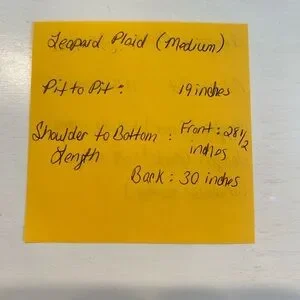 Leopard Plaid (Medium)
Pit to Pit : 19 inches
Shoulder to Bottom : Front : 28 1/2
Length inches
Back : 30 inches